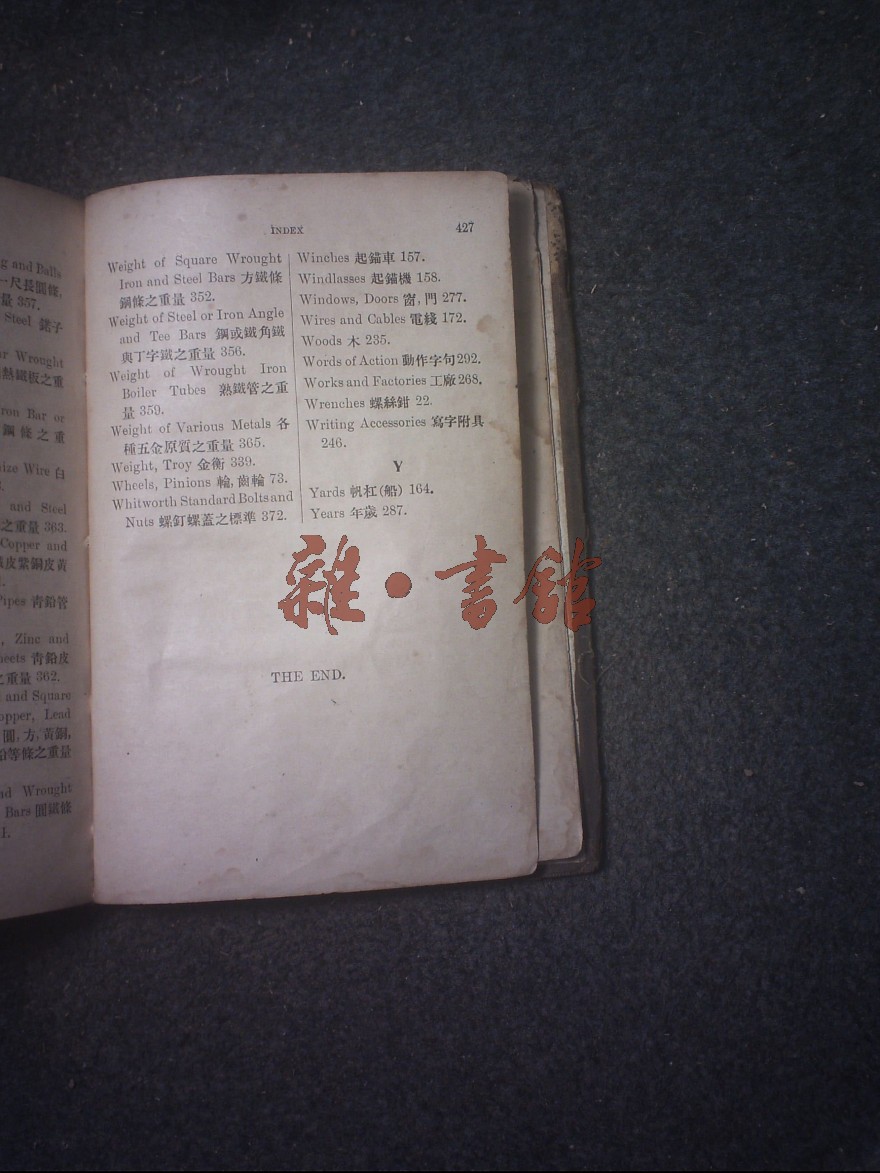 g and Balls
一尺長圓條,
量 357.
Steel 銠子
ar Wrought
熱鐵板之重
ron Bar or
鋼條之重
ize Wire 白
and Steel
之重量 363.
Copper and
皮紫銅皮黃
Pipes 青鉛管
, Zinc and
heets 青鉛皮
之重量 362.
and Square
opper, Lead
圓, 方, 黃銅,
鉛等條之重量
nd Wrought
Bars 圓鐵條
INDEX 427
Weight of Square Wrought
Iron and Steel Bars 方鐵條
鋼條之重量 352.
Weight of Steel or Iron Angle
and Tee Bars 鋼或鐵角鐵
與丁字鐵之重量 356.
Weight of Wrought Iron
Boiler Tubes 熟鐵管之重
量 359.
Weight of Various Metals 各
種五金原質之重量 365.
Weight, Troy 金衡 339.
Wheels, Pinions 輪, 齒輪 73.
Whitworth Standard Bolts and
Nuts 螺釘螺蓋之標準 372.
Winches 起錨車 157.
Windlasses 起錨機 158.
Windows, Doors 窗, 門 277.
Wires and Cables 電綫 172.
Woods 木 235.
Words of Action 動作字句 292.
Works and Factories 工廠 268.
Wrenches 螺絲鉗 22.
Writing Accessories 寫字附具
246.
Y
Yards 帆杠(船) 164.
Years 年歲 287.
THE END.
雜·書館